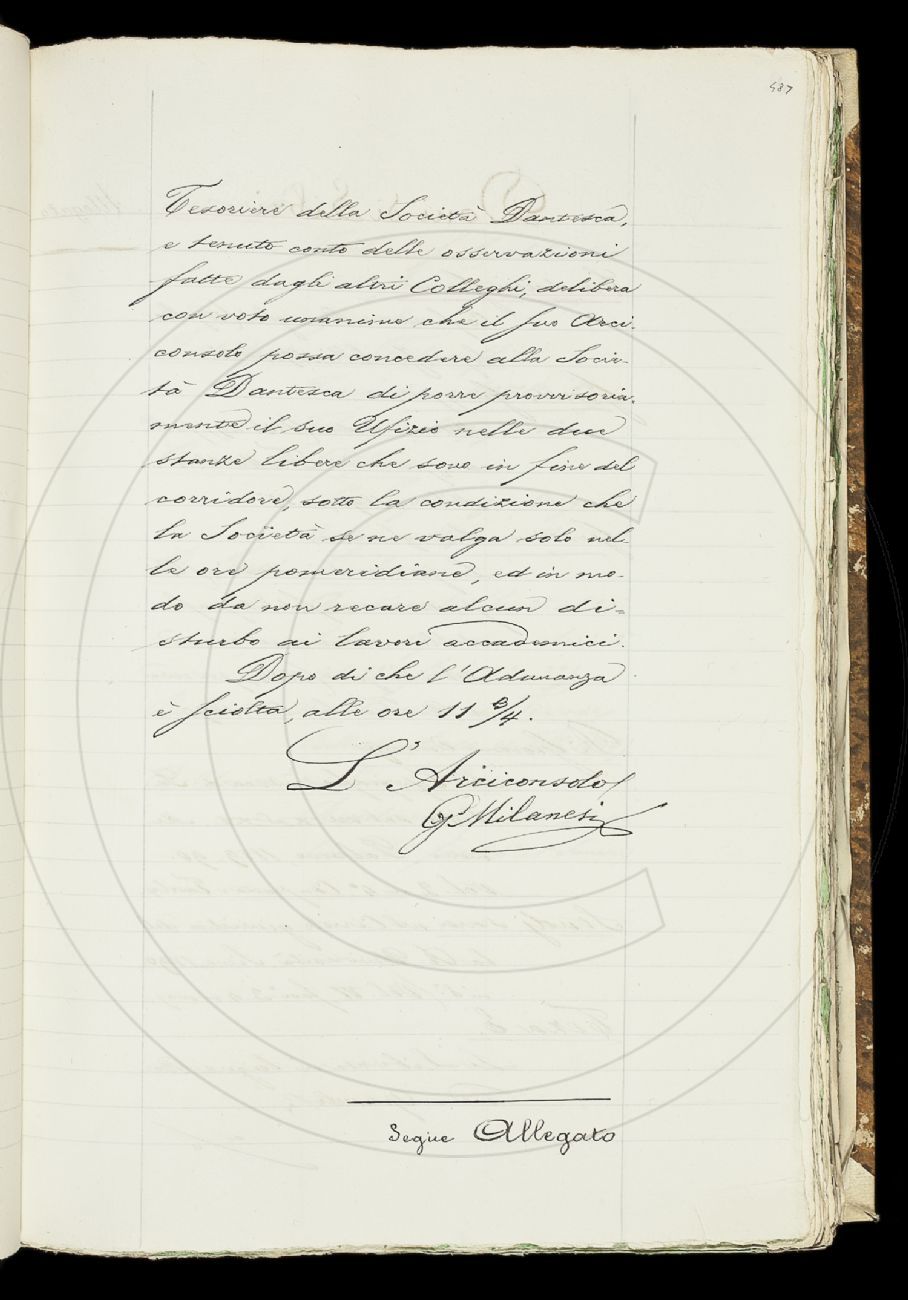 487
Tesoriere della Società Dantesca,
e tenuto conto delle osservazioni
fatte dagli altri Colleghi, delibera
con voto unanime che il suo Arci-
consolo possa concedere alla Socie-
tà Dantesca di porre provvisoria-
mente il suo Ufizio nelle due
stanze libere che sono in fine del
corridore, sotto la condizione che
la Società se ne valga solo nel-
le ore pomeridiane, ed in mo-
do da non recare alcun di=
sturbo ai lavori accademici.
Dopo di che l'Adunanza
è sciolta, alle ore 11 3/4.
L'Arciconsolo
G. Milanesi
Segue Allegato